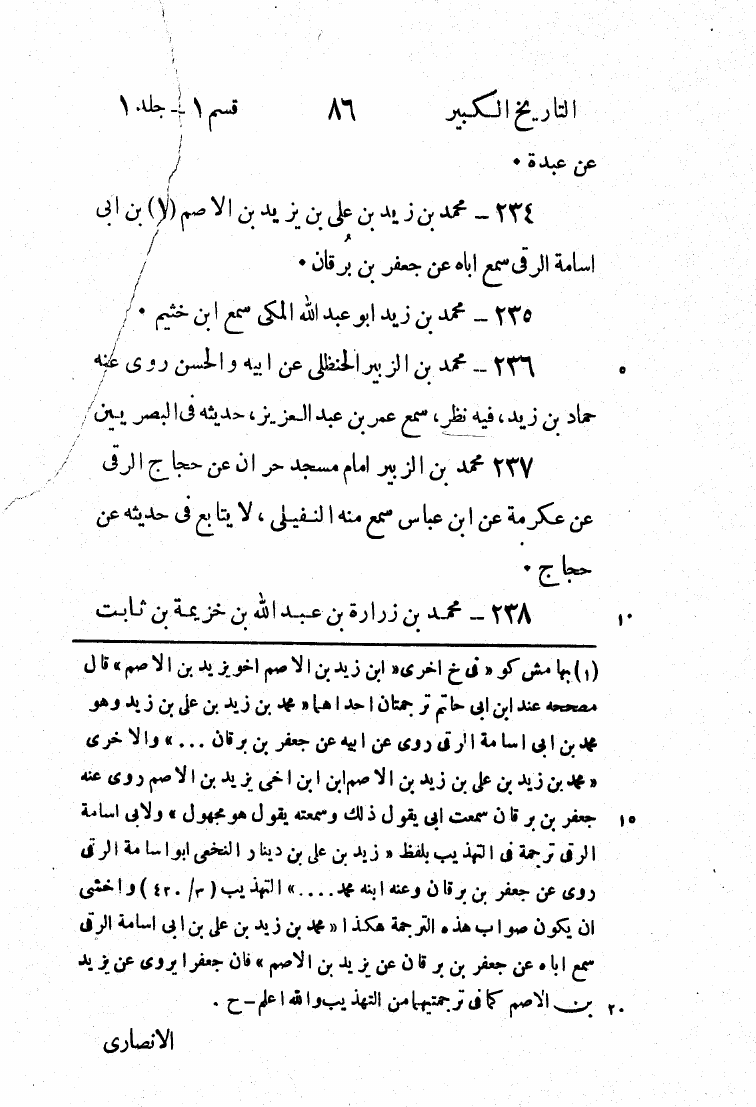 التاريخ الكبير ٨٦ قسم ١ – جلد ١
عن عبدة ٠
٢٣٤ – محمد بن زيد بن على بن يزيد بن الاصم (١) بن ابى
اسامة الرقى سمع اباه عن جعفر بن بُرقان ٠
٢٣٥ – محمد بن زيد ابو عبد الله المكى سمع ابن خثيم ٠
٢٣٦ – محمد بن الزبير الحنظلى عن ابيه والحسن روى عنه ٥
حماد بن زيد، فيه نظر، سمع عمر بن عبد العزيز، حديثه فى البصريين
٢٣٧ محمد بن الزبير امام مسجد حران عن حجاج الرقى
عن عكرمة عن ابن عباس سمع منه النفيلى، لا يتابع فى حديثه عن
حجاج ٠
٢٣٨ – محمد بن زرارة بن عبد الله بن خزيمة بن ثابت ١٠
(١) بهامش كو « فى خ اخرى « ابن زيد بن الاصم اخو يزيد بن الاصم » قال
مصححه عند ابن ابى حاتم ترجمتان احداهما « محمد بن زيد بن على بن زيد وهو
محمد بن ابى اسامة الرقى روى عن ابيه عن جعفر بن برقان ... » والاخرى
« محمد بن زيد بن على بن زيد بن الاصم ابن ابن اخى يزيد بن الاصم روى عنه
جعفر بن برقان سمعت ابى يقول ذلك وسمعته يقول هو مجهول » ولابى اسامة ١٥
الرقى ترجمة فى التهذيب بلفظ « زيد بن على بن دينار النخعى ابو اسامة الرقى
روى عن جعفر بن برقان وعنه ابنه محمد .... » التهذيب (٣/ ٤٢٠) واخشى
ان يكون صواب هذه الترجمة هكذا « محمد بن زيد بن على بن ابى اسامة الرقى
سمع اباه عن جعفر بن برقان عن يزيد بن الاصم » فان جعفرا يروى عن يزيد
بن الاصم كما فى ترجمتيهما من التهذيب والله اعلم – ح . ٢٠
الانصارى